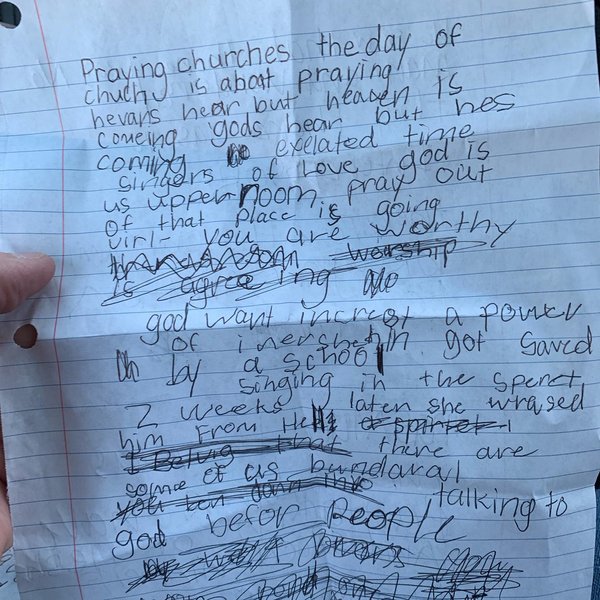 Praying churches the day of
chuchy is about praying
hevars hear but heaven is
comeing gods hear but hes
coming exelated time
singers of Love god is
us upper room pray out
of that place is going
virl- you are worthy
worship
is agree ing
god want increst a power
of inershe hin got saved
by a school
singing in the speret
2 weeks later she wrased
him From Hell
I Belvig that there are
some of us bundaral
talking to
god befor People